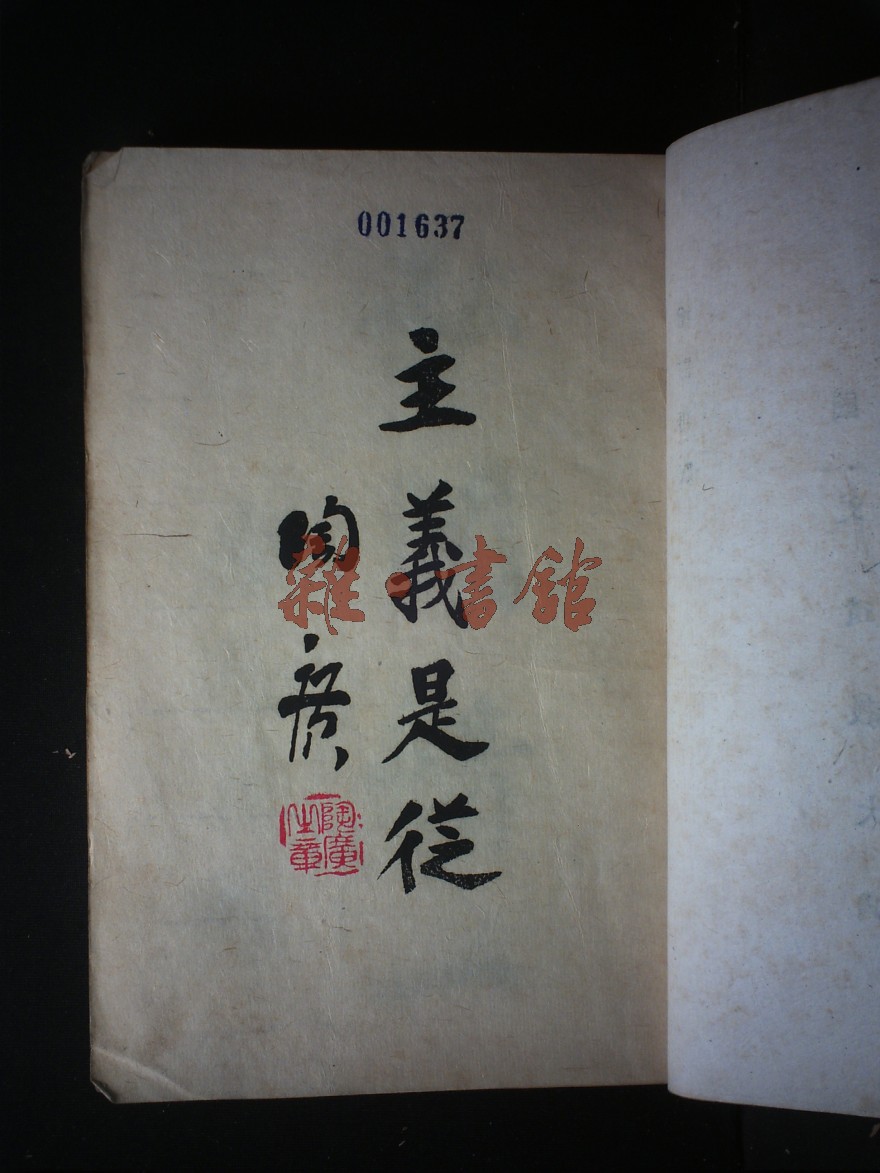 001637
主義是從
陶廣
陶廣之章
雜·書館